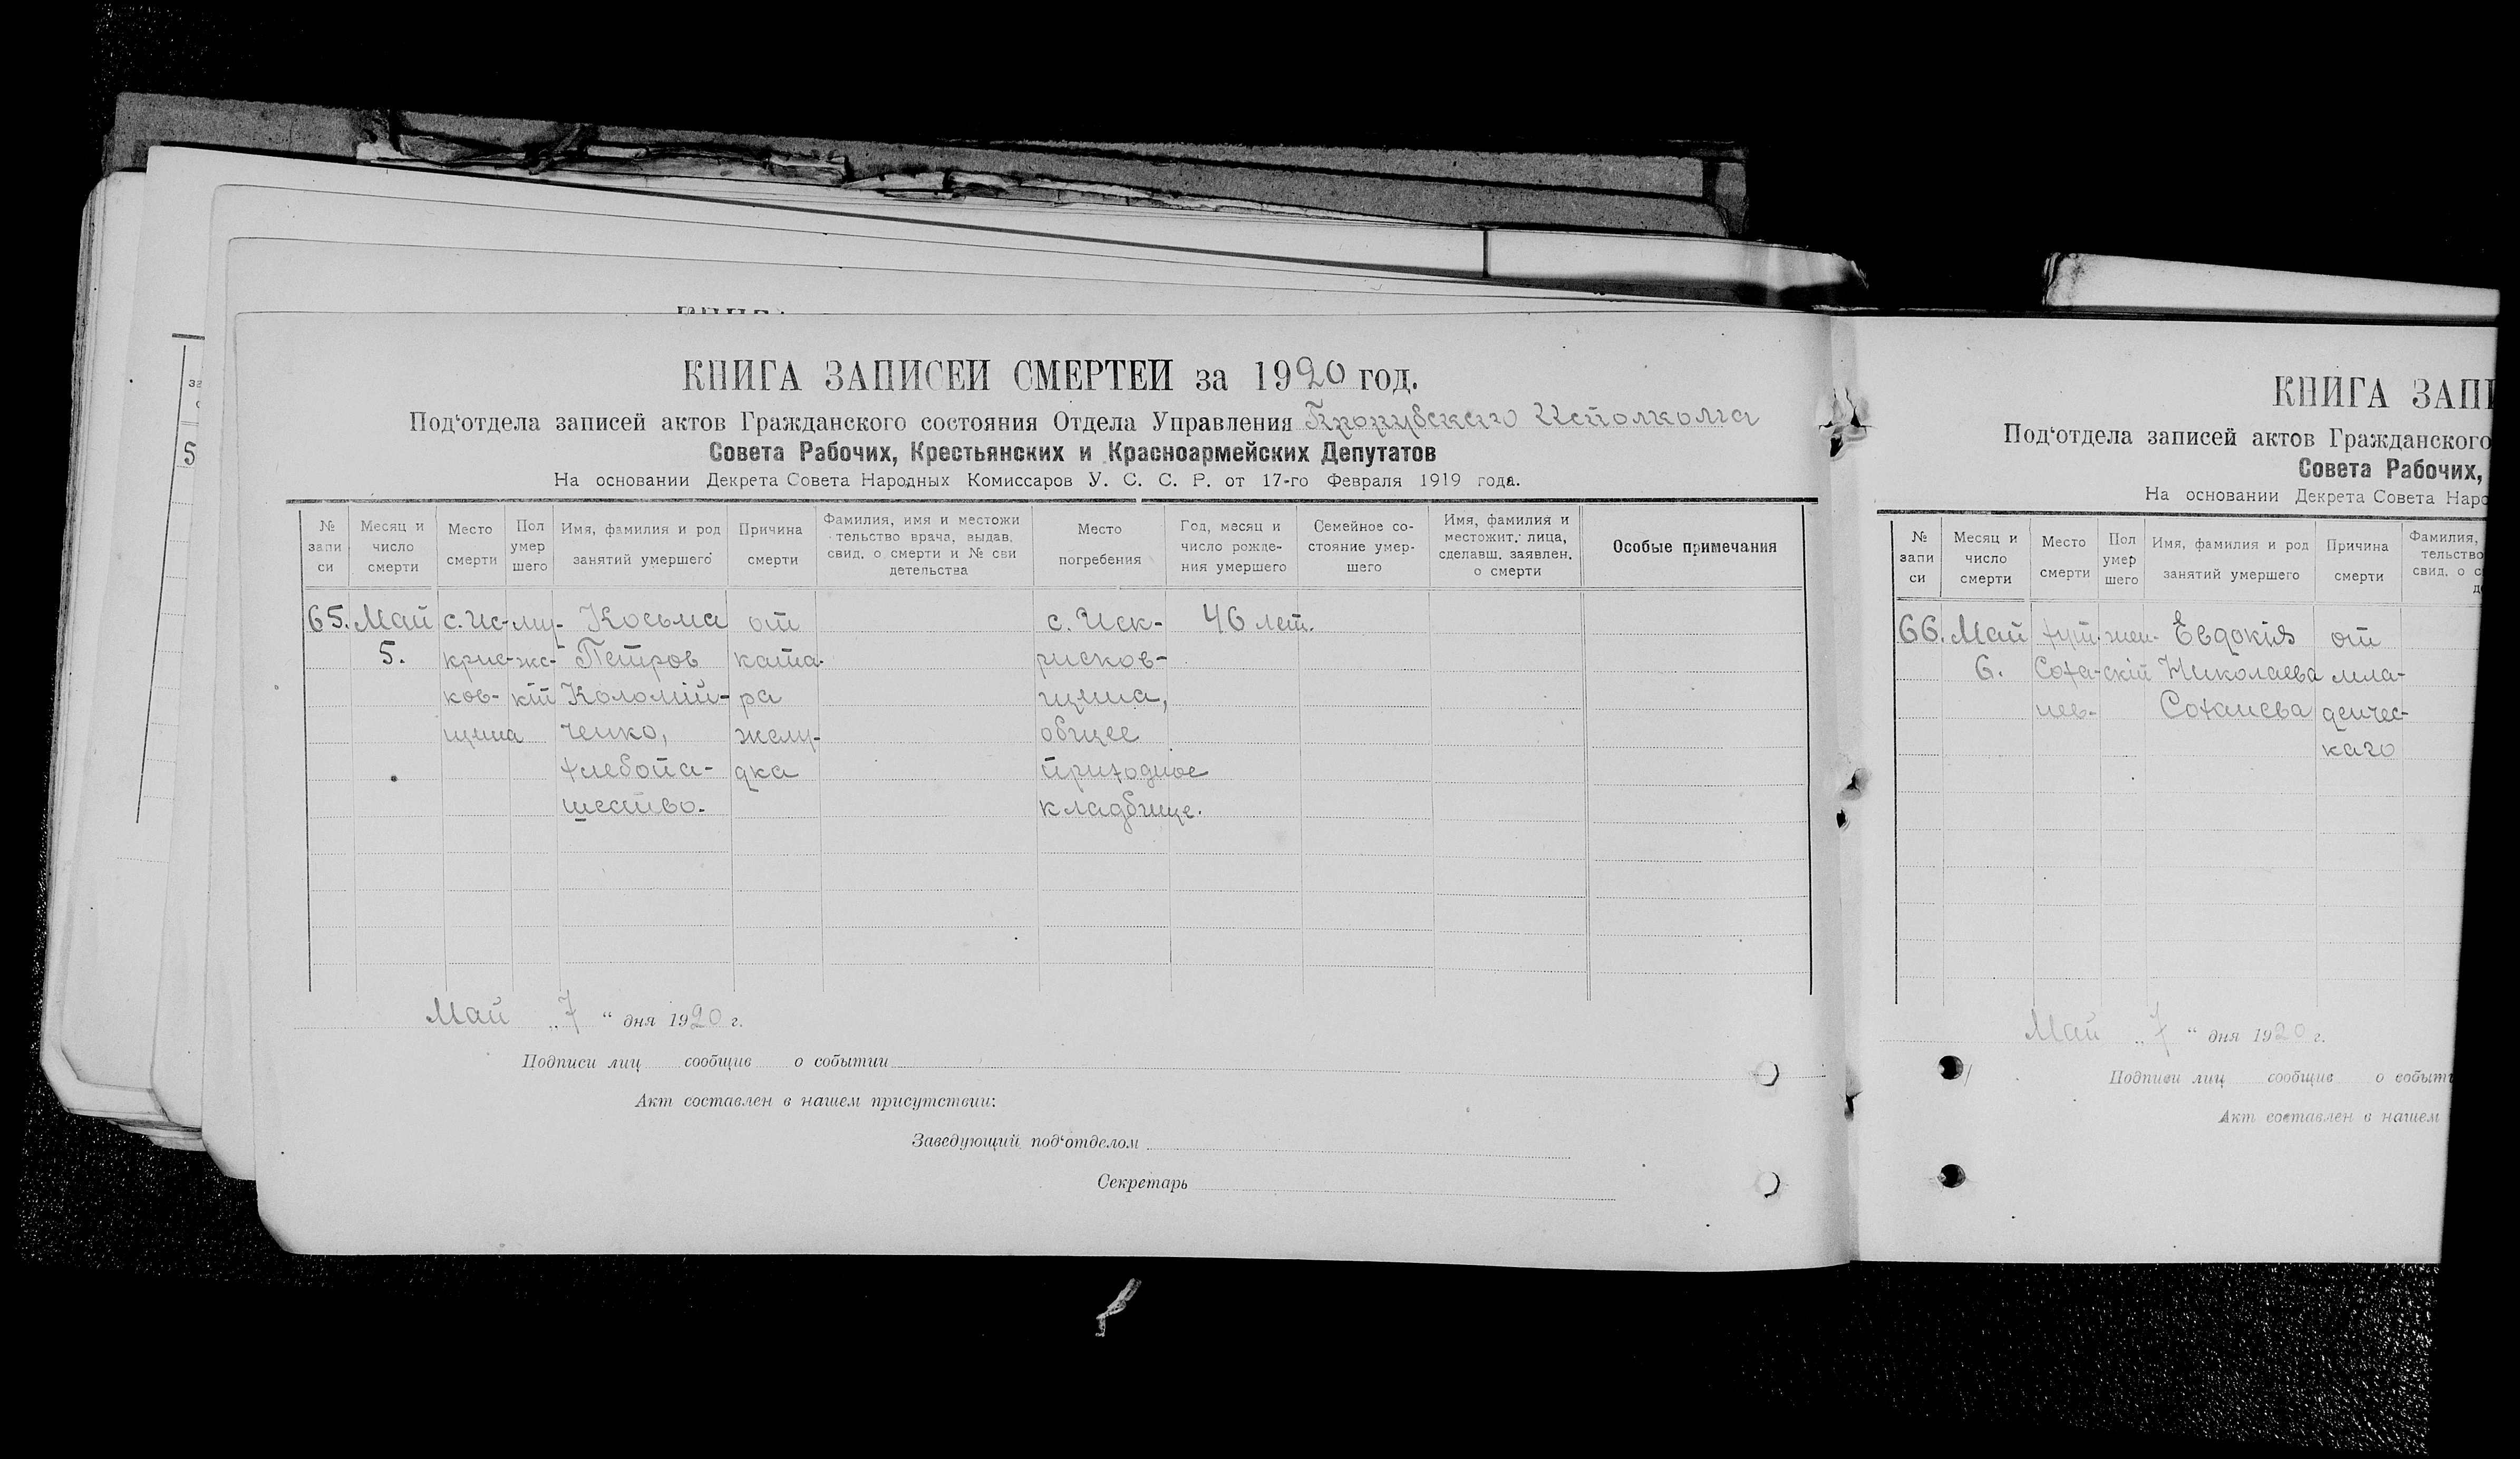 КНИГА ЗАПИСЕЙ СМЕРТЕЙ за 1920 год.
Под‘отдела записей актов Гражданского состояния Отдела Управления Исполкома
Совета Рабочих, Крестьянских и Красноармейских Депутатов
На основании Декрета Совета Народных Комиссаров У. С. С. Р. от 17-го Февраля 1919 года.
№ запи си
Месяц и число смерти
Место смерти
Пол умер шего
Имя, фамилия и род занятий умершего
Причина смерти
Фамилия, имя и местожи тельство врача, выдав. свид. о смерти и № сви детельства
Место погребения
Год, месяц и число рожде- ния умершего
Семейное со- стояние умер- шего
Имя, фамилия и местожит. лица, сделавш. заявлен. о смерти
Особые примечания
65. Май с. Ис- му- Косьма от с. Иск- 46 лет.
5. крис- жс- Петров ката- рисков-
ков- кій Коломій- ра щина,
щина ченко, желу- общее
хлебопа- дка приходное
шество. кладбище.
Май „ 7 “ дня 1920 г.
Подписи лиц сообщив о событии
Акт составлен в нашем присутствии:
Заведующий под‘отделом
Секретарь
КНИГА ЗАПИ
Под‘отдела записей актов Гражданского
Совета Рабочих,
На основании Декрета Совета Наро
№ запи си
Месяц и число смерти
Место смерти
Пол умер шего
Имя, фамилия и род занятий умершего
Причина смерти
Фамилия, тельство свид. о с
66. Май хут. жен- Евдокія от
6. Соха- скій Николаева мла-
нев- Соханева денчес-
каго
Май „ 7 “ дня 1920 г.
Подписи лиц сообщив о событ
Акт составлен в нашем
5